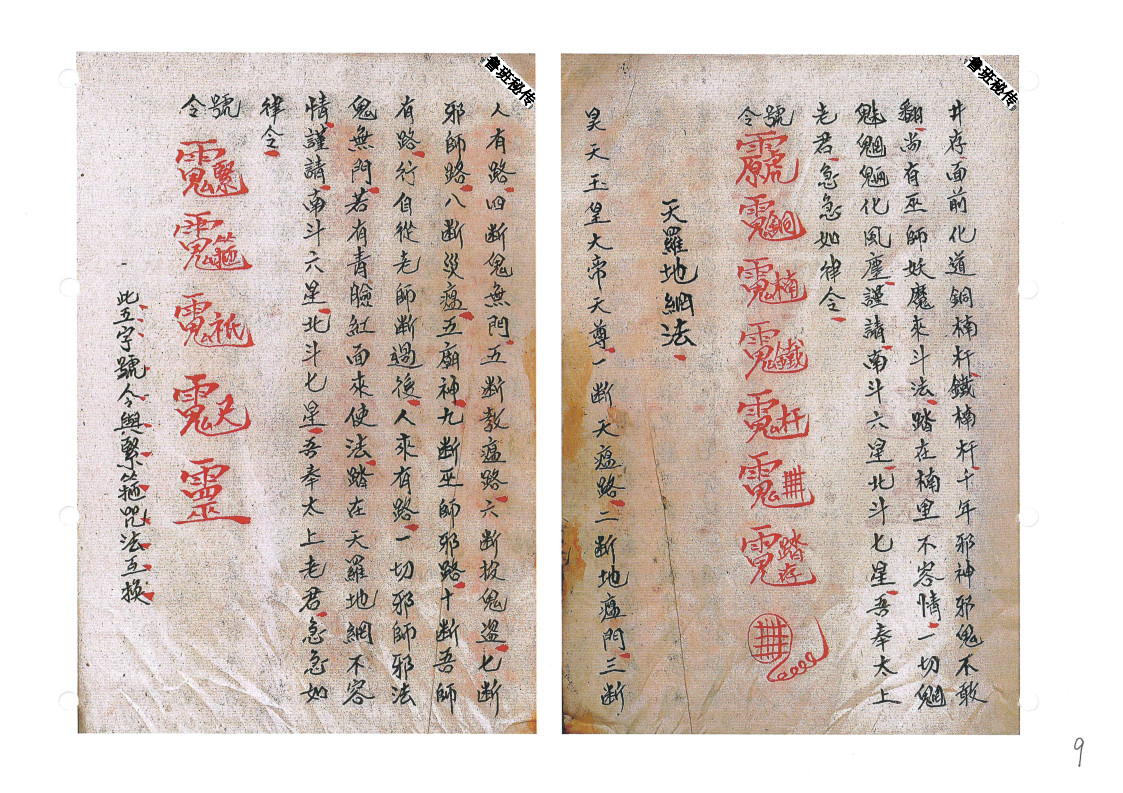 鲁班秘传
井存面前化道銅楠杆鐵楠杆千年邪神邪鬼不敢
翻尚有巫師妖魔來斗法踏在楠里不容情一切魍
魅魍魎化風塵謹請南斗六星北斗七星吾奉太上
老君急急如律令
號令
天羅地網法
昊天玉皇大帝天尊一断天瘟路二断地瘟門三断
鲁班秘传
人有路四断鬼無門五断教瘟路六断按鬼盜七断
邪師路八断災瘟五廟神九断巫師邪路十断吾師
有路行自從老師断過後人來有路一切邪師邪法
鬼無門若有青臉紅面來使法踏在天羅地網不容
情謹請南斗六星北斗七星吾奉太上老君急急如
律令
號令
靈
此五字號令與緊箍咒法互換
9